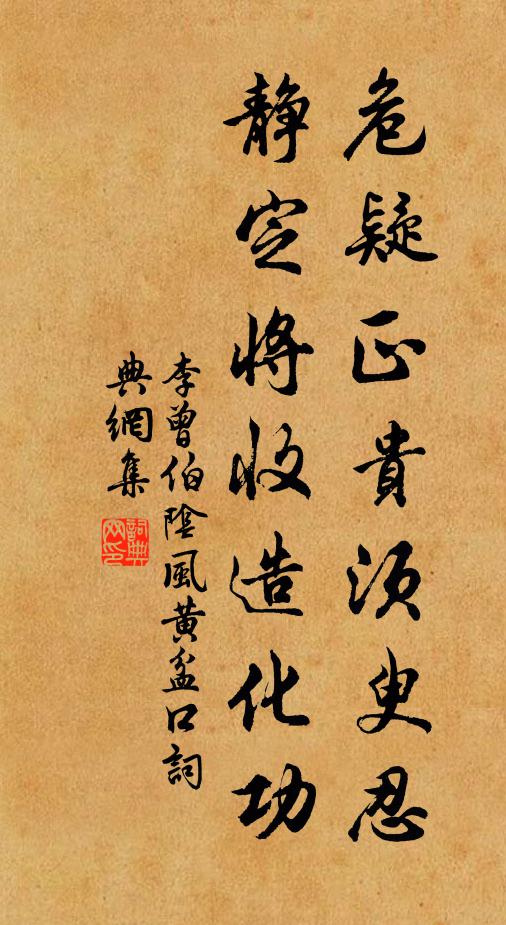 危疑正貴須臾忍
静定將收造化功
李曾伯陰風黃盆口詞
典網集
詞典網印